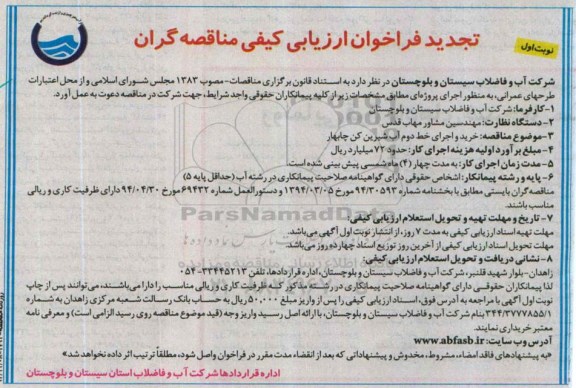 تجدید فراخوان ارزیابی کیفی مناقصه گران
نوبت اول
شرکت آب و فاضلاب سیستان و بلوچستان در نظر دارد به استناد قانون برگزاری مناقصات- مصوب ۱۳۸۳ مجلس شورای اسلامی و از محل اعتبارات
طرحهای عمرانی، به منظور اجرای پروژه‌ای مطابق مشخصات زیر از کلیه پیمانکاران حقوقی واجد شرایط، جهت شرکت در مناقصه دعوت به عمل آورد.
۱- کارفرما: شرکت آب و فاضلاب سیستان و بلوچستان
۲- دستگاه نظارت: مهندسین مشاور مهاب قدس
۳- موضوع مناقصه: خرید و اجرای خط دوم آب شیرین کن چابهار
۴- مبلغ برآورد اولیه هزینه اجرای کار: حدود ۷۲ میلیارد ریال
۵- مدت زمان اجرای کار: به مدت چهار (۴) ماه شمسی پیش بینی شده است.
۶- پایه و رشته پیمانکار: اشخاص حقوقی دارای گواهینامه صلاحیت پیمانکاری در رشته آب (حداقل پایه ۵)
مناقصه گران بایستی مطابق با بخشنامه شماره ۹۴/۳۰۵۹۳ مورخ ۱۳۹۴/۰۳/۰۵ و دستورالعمل شماره ۶۹۴۳۲ مورخ ۹۴/۰۴/۳۰ دارای ظرفیت کاری و ریالی
مناسب باشند.
۷- تاریخ و مهلت تهیه و تحویل استعلام ارزیابی کیفی:
مهلت تهیه اسناد ارزیابی کیفی به مدت ۷ روز، از انتشار نوبت اول آگهی می‌باشد.
مهلت تحویل اسناد ارزیابی کیفی از آخرین روز توزیع اسناد چهارده روز می‌باشد.
۸- نشانی دریافت و تحویل استعلام ارزیابی کیفی:
زاهدان- بلوار شهید قلنبر، شرکت آب و فاضلاب سیستان و بلوچستان، اداره قراردادها، تلفن ۳۳۴۴۵۲۱۳-۰۵۴
لذا پیمانکاران حقوقی دارای گواهینامه صلاحیت پیمانکاری در رشته مذکور که ظرفیت کاری و ریالی مناسب را دارا می‌باشند، می‌توانند پس از چاپ
نوبت اول آگهی با مراجعه به آدرس فوق، اسناد ارزیابی کیفی را پس از واریز مبلغ ۵۰,۰۰۰ ریال به حساب بانک رسالت شعبه مرکزی زاهدان به شماره
۳۴۴/۳۷۷۷۸۵۵/۱ بنام شرکت آب و فاضلاب سیستان و بلوچستان، با ارائه اصل رسید واریز وجه (قید موضوع مناقصه روی رسید الزامی است) و معرفی نامه
معتبر خریداری نمایند.
آدرس وب سایت: www.abfasb.ir
«به پیشنهادهای فاقد امضاء، مشروط، مخدوش و پیشنهاداتی که بعد از انقضاء مدت مقرر در فراخوان واصل شود، مطلقاً ترتیب اثر داده نخواهد شد»
اداره قراردادها شرکت آب و فاضلاب استان سیستان و بلوچستان
ParsNamadData